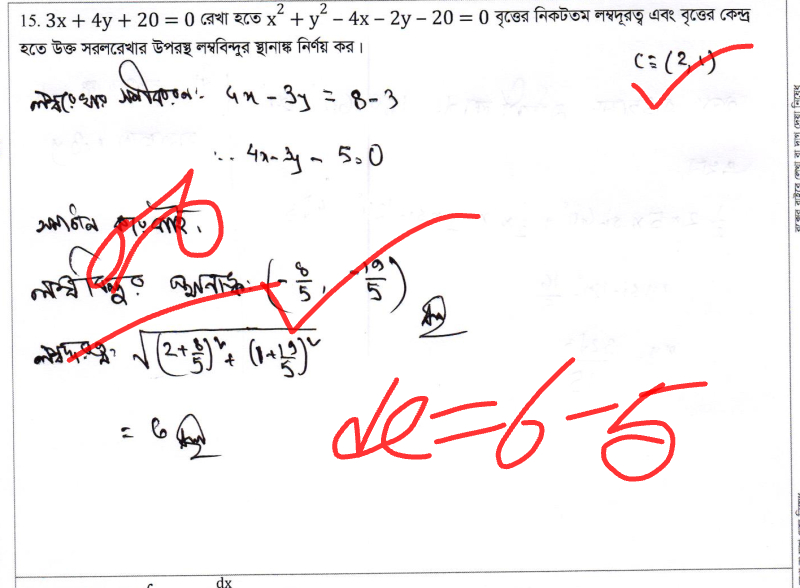 15. 3x + 4y + 20 = 0 রেখা হতে x² + y² − 4x − 2y − 20 = 0 বৃত্তের নিকটতম লম্বদূরত্ব এবং বৃত্তের কেন্দ্র
হতে উক্ত সরলরেখার উপরস্থ লম্ববিন্দুর স্থানাঙ্ক নির্ণয় কর।
C ≡ (2, 1)
লম্বরেখার সমীকরণ:- 4x − 3y = 8 − 3
∴ 4x − 3y − 5 = 0
সমাধান করে পাই,
লম্ববিন্দুর স্থানাঙ্ক: (−8/5, −19/5)
লম্বদূরত্ব: √(2+8/5)² + (1+19/5)²
= 6
de = 6 − 5
dx